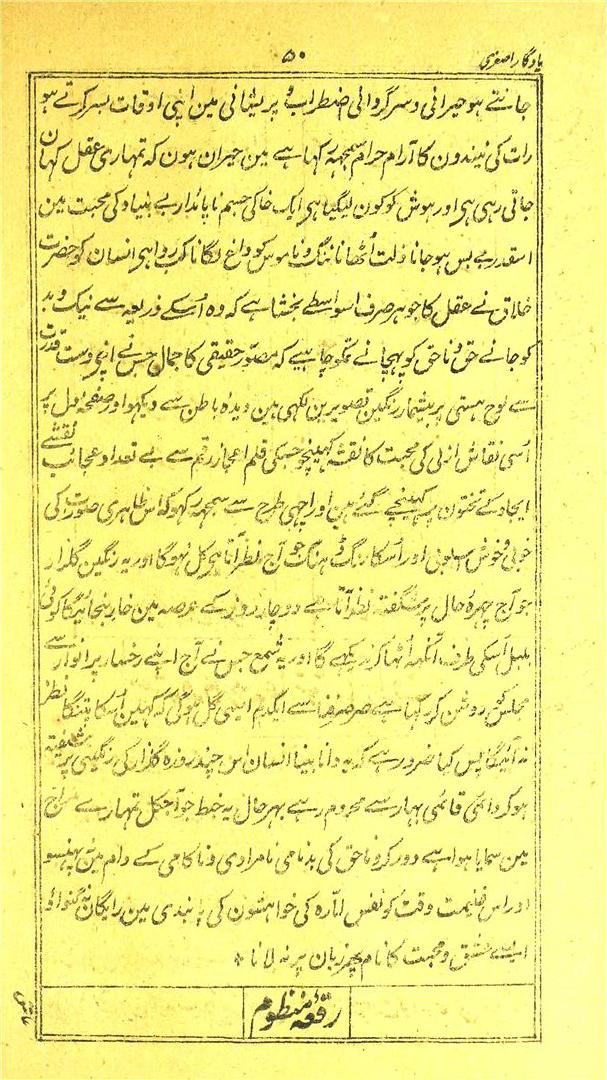 یادگار اصغری
۵۰
جانتے ہو حیرانی و سرگردانی اضطراب و پریشانی مین اپنی اوقات بسر کرتے ہو
رات کی نیندون کا آرام حرام سمجہہ رکہا ہے مین حیران ہون کہ تمہاری عقل کہان
جاتی رہی ہی اور ہوش کو کون لیگیا ہی ایک خاکی جسم ناپائدار بے بنیاد کی محبت مین
اسقدر بے بس ہو جانا ذلت اُٹھانا ننگ و ناموس کو داغ لگانا کب روا ہی انسان کو حضرت
خلاق نے عقل کا جوہر صرف اسواسطے بخشا ہے کہ وہ اُسکے ذریعہ سے نیک و بد
کو جانے حق و ناحق کو پہچانے تمکو چاہیے کہ مصوّر حقیقی کا جمال جس نے اپنے دست قدرت
سے لوح ہستی پر بیشمار رنگین تصویرین لکہی ہین دیدۂ باطن سے دیکہو اور صفحۂ دل پر
اُسی نقاش ازلی کی محبت کا نقشہ کہینچو جسکی قلم اعجاز رقم سے بے تعداد عجائب نقشے
ایجاد کے تختون پر کہینچے گئے ہین اور اچہی طرح سے سمجہہ رکہو کہ اس ظاہری صورت کی
خوبی و خوش اسلوبی اور اُسکا رنگ ڈہنگ جو آج نظر آتا ہی کل نہوگا اور یہ رنگین گلزار
جو آج چہرۂ حال پر شگفتہ نظر آتا ہے دو چار روز کے عرصہ مین خار بنجائیگا کوئی
بلبل اُسکی طرف آنکہہ اُٹھا کر نہ دیکہے گا اور یہ شمع جس نے آج اپنے رخسار پر انوار سے
مجلس کو روشن کر رکہا ہے صرصر فنا سے ایکدم ایسی گل ہوگی کہ کہین اُسکا پتنگا نظر
نہ آئیگا پس کیا ضرور ہے کہ یہ دانا بینا انسان اس چند روزہ گلزار کی رنگینی پر شیفتہ
ہو کر دائمی قائمی بہار سے محروم رہے بہر حال یہ خبط جو آجکل تمہارے مزاج
مین سمایا ہوا ہے دور کرو ناحق کی بدنامی نامرادی و ناکامی کے دام مین نہ پہنسو
اور اس غنیمت وقت کو نفس امّارہ کی خواہشون کی پابندی مین رایگان نہ گنواؤ
ایسے عشق و محبت کا نام پھر زبان پر نہ لانا *
رقعۂ منظوم